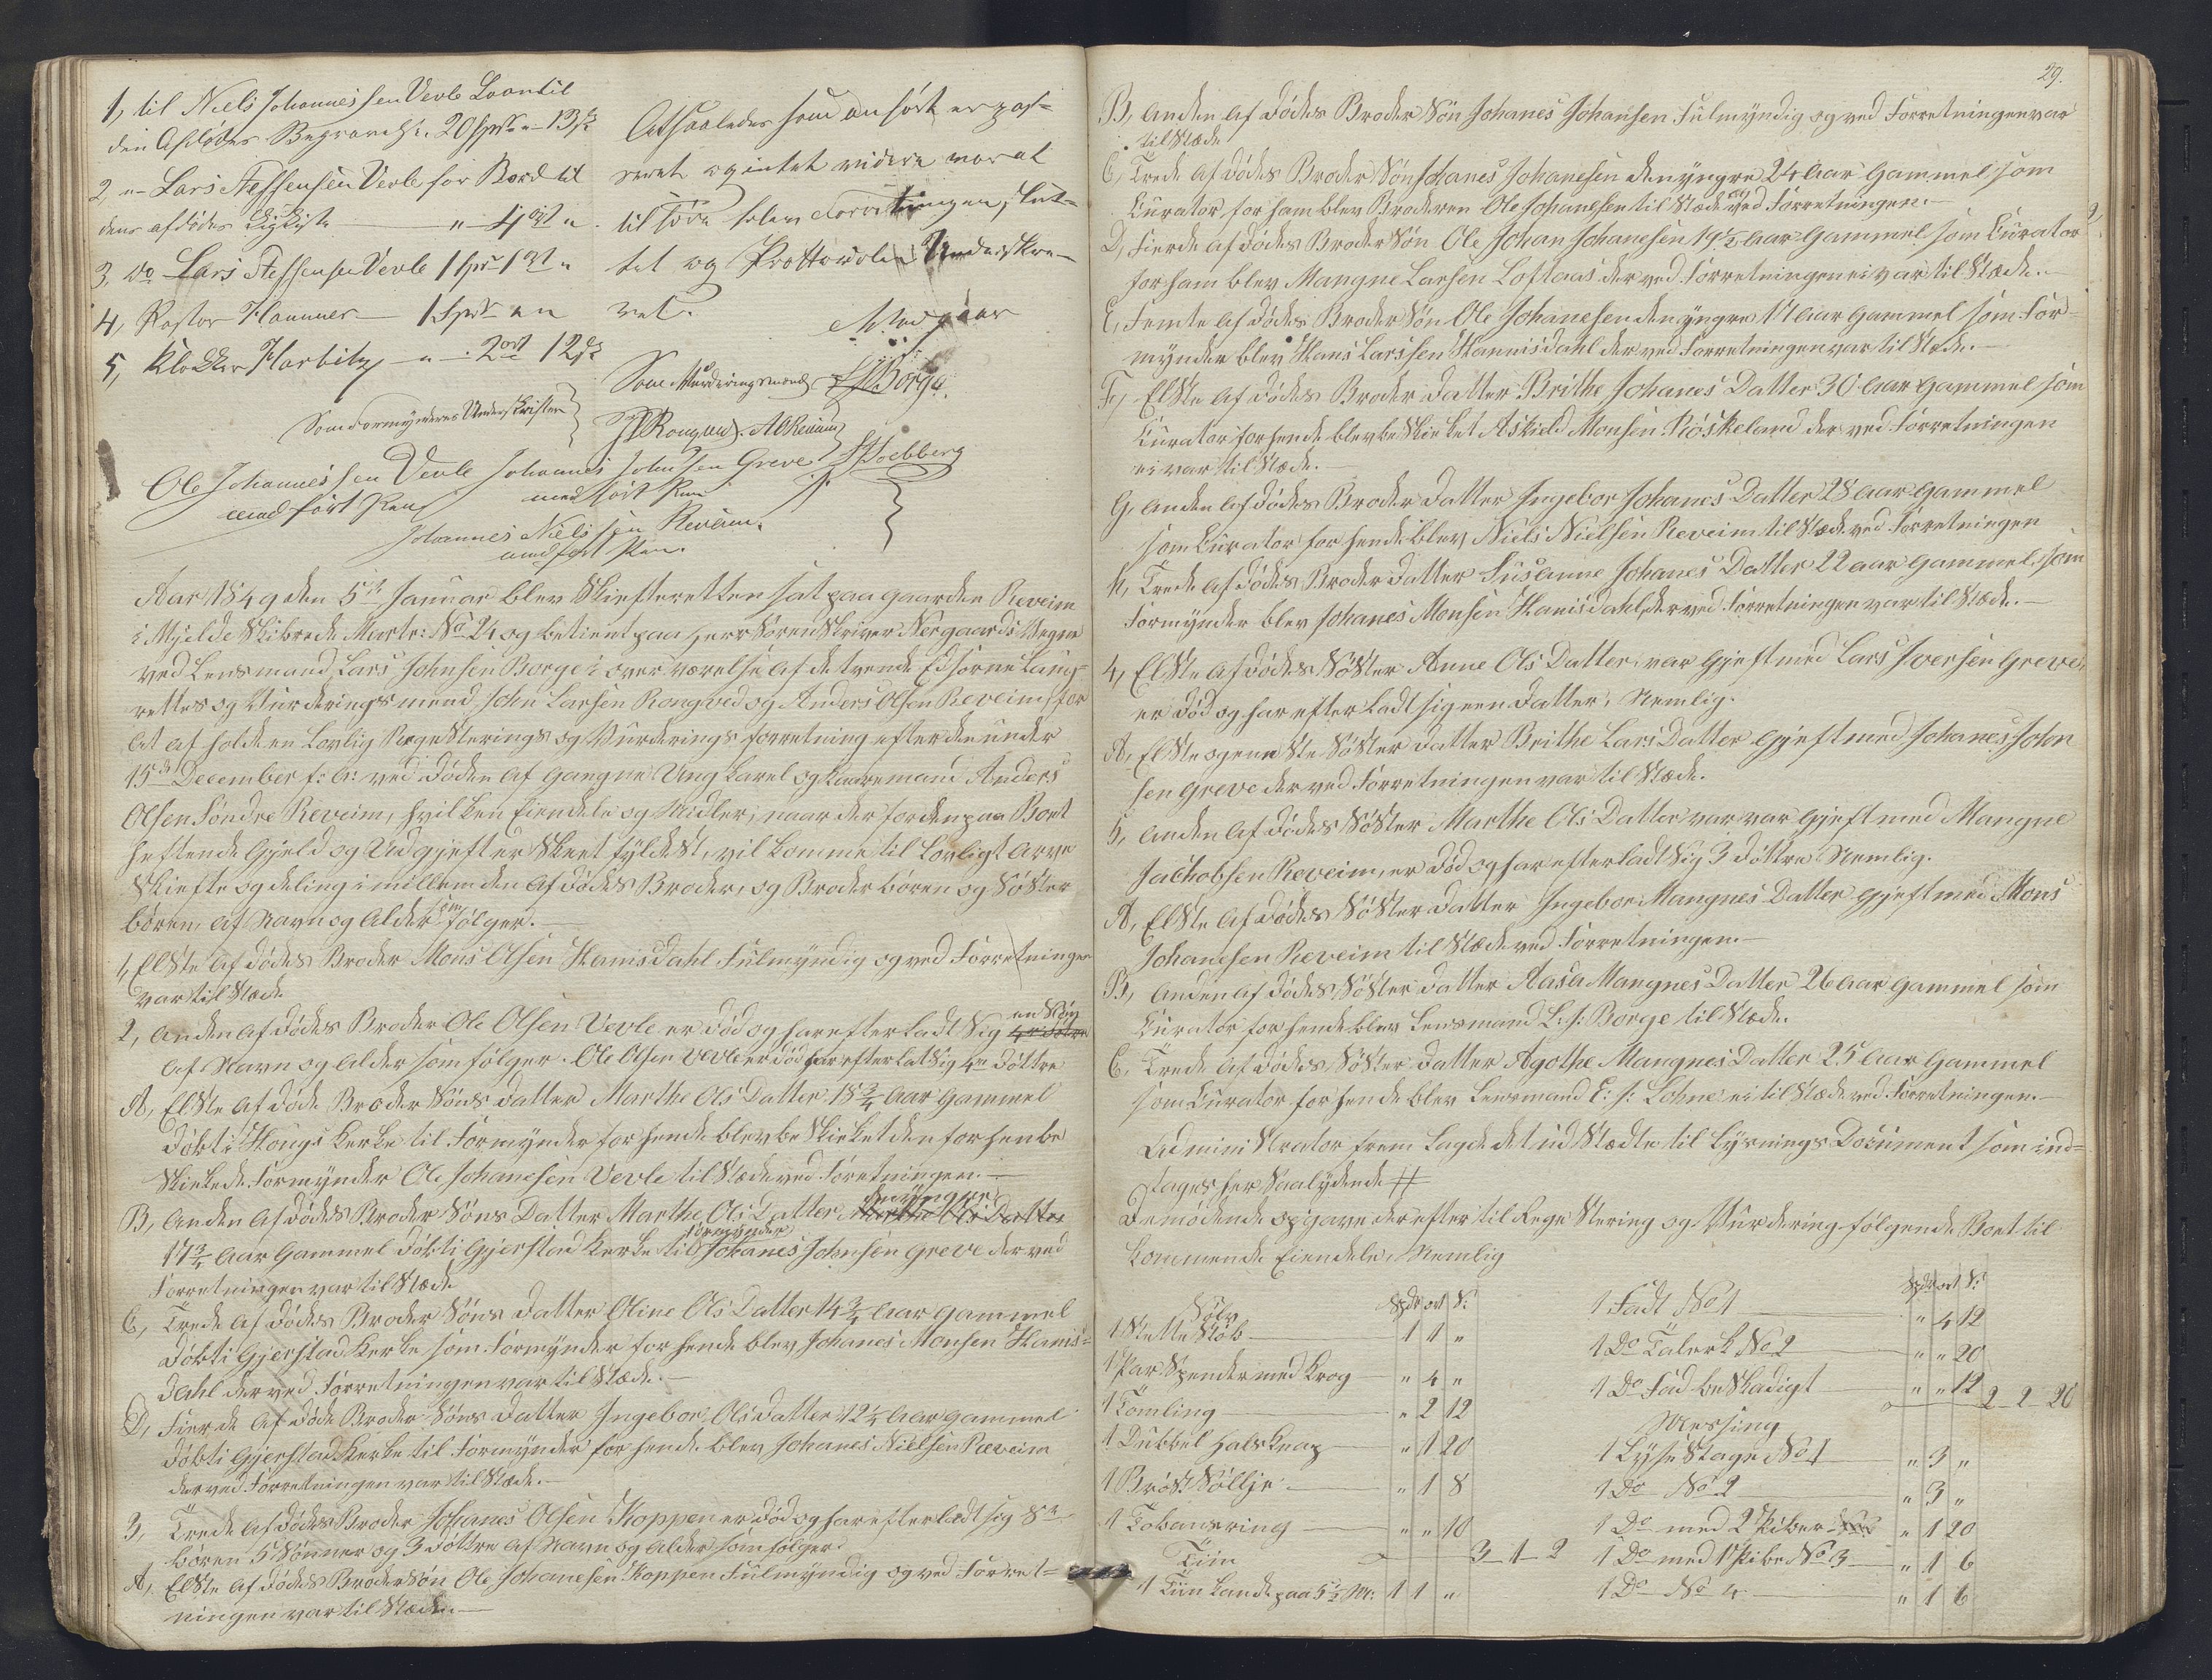 1, til Niels Johannessen Vevle Laantil
den Afdödes Begravelse 20 Spd " 13 s
2, " Lars Steffensen Vevle for Bord til
dens afdödes Ligkiste " 4 ort "
3, Do Lars Steffensen Vevle 1 Spd 1 ort "
4, Pastor Hammer 1 Spd " "
5, Klokker Harbitz " 2 ort 12 s
At saaledes som anfört er pas-
seret og intet videre var at
tilföre blev Forretningen slut-
tet og Prottocolen Underskre-
vet.
Som Vurderingsmænd LJBorge.
Som Formynderes Underskrifter
Ole Johannessen Vevle Johannes Johnsen Greve
med fört Pen med fört Pen
Johannes Nielssen Reveim.
med fört Pen.
Aar 1849 den 5te Januar blev Skifteretten sat paa gaarden Reveim
i Mjelde Skibrede Matr: No 24 og betient paa Herr Sörenskriver Nergaards Vegne
ved Lensmand Lars Johnsen Borge i overværelse af de tvende Edsorne Laug-
rettes og Vurderingsmend John Larsen Rongved og Anders Olsen Reveim, for
at af holde en Lovlig Regesterings og Vurderings forretning efter den under
15de December f: A: ved Döden af gangne Ung karel og Kaaremand Anders
Olsen Söndre Reveim, hvilken Eiendele og Midler, naar der forden paa Boet
heftende Gjeld og Udgjefter Skeet fyldest, vil komme til Lovligt Arve
Skiefte og deling imillem den Afdödes Broder, og Broder bören og Söster
bören, af Navn og Alder som fölger.
1, Elste Afdödes Broder Mons Olsen Hamisdahl Fulmyndig og ved Forretningen
var til Stæde
2, Anden Afdödes Broder Ole Olsen Vevle er död og har efterladt Sig en Sön
af Navn og Alder som fölger. Ole Olsen Vevle er död har efterlat Sig 4re döttre
A, Elste Afdöde Broder Söns datter Marthe Ols Datter 18 3/4 Aar gammel
Döbt i Hougs Kerke til Formynder for hende blev beskieket den forhenbe
Skiekede Formynder Ole Johanesen Vevle til Stæde ved Foretningen.
B, Anden Afdödes Broder Söns Datter Marthe Ols Datter den yngre
17 3/4 Aar Gammel döbt i Gjerstad Kerke til Formynder Johanes Johnsen Greve der ved
Forretningen var til Stæde
C, Trede Afdödes Broder Söns datter Oline Ols Datter 14 3/4 Aar gammel
döbt i Gjerstad Kerke som Formynder for hende blev Johanes Monsen Hamis-
dahl der ved Forretningen var til Stæde.
D, Fierde Afdöde Broder Söns datter Ingebor Olsdatter 12 1/4 Aar gammel
döbt i Gjerstad Kerke til Formynder for hende blev Johanes Nielsen Reveim
der ved Forretningen var til Stæde.
3, Trede Afdödes Broder Johanes Olsen Koppen er död og har efterladt sig 8te
bören 5 Sönner og 3 döttre af Navn og Alder som fölger:
A, Elste Afdödes Broder Sön Ole Johanesen Koppen Fulmyndig og ved Forret-
ningen var til Stæde.
29.
B, Anden Afdödes Broder Sön Johanes Johansen Fulmyndig og ved Forretningen var
til Stæde
C, Trede Afdödes Broder Sön Johanes Johanesen den yngre 24 Aar Gammel som
Curator for ham blev Broderen Ole Johanesen til Stæde ved Forretningen.
D, Fierde Afdödes Broder Sön Ole Johan Johanesen 19 1/2 Aar Gammel som Curator
for ham blev Mangne Larsen Loftaas der ved Forretningen ei var til Stæde.
E, Femte Afdödes Broder Sön Ole Johanesen den yngre 17 Aar gammel som For-
mynder blev Hans Larssen Hannisdahl der ved Forretningen var til Stæde.
F, Elste Afdödes Broder datter Brithe Johanes Datter 30 Aar gammel som
Curator for hende blev beskieket Askild Monsen Röskeland der ved Forretningen
ei var til Stæde.
G, Anden Afdödes Broder datter Ingebor Johanes Datter 28 Aar gammel
som Curator for hende blev Niels Nielsen Reveim til Stæde ved Forretningen
H, Trede Afdödes Broder datter Susanne Johanes Datter 22 aar gammel, som
Formynder blev Johanes Monsen Hamisdahl, der ved Forretningen var til Stæde.
4, Elste Afdödes Söster Anne Ols Datter, var gjeft med Lars Iversen Greve,
er död og har efterladt sig een datter, Nemlig.
A, Elste og eneste Söster datter Brithe Lars Datter gjeft med Johanes John
sen Greve der ved Forretningen var til Stæde.
5, Anden Afdödes Söster Marthe Ols Datter var var gjeft med Mangne
Jachobsen Reveim, er död og har efterladt Sig 3 döttre Nemlig.
A, Elste Afdödes Söster datter Ingebor Mangnes Datter gjeft med Mons
Johanesen Reveim til Stæde ved Forretningen.
B, Anden Afdödes Söster datter Aasa Mangnes Datter 26 Aar gammel som
Curator for hende blev Lensmand L: J: Borge til Stæde.
C, Trede Afdödes Söster datter Agothe Mangnes Datter 25 Aar gammel
som Curator for hende blev Lensmand E: J: Lohne ei til Stæde ved Forretningen.
Administrator fremlagde det udstædte til Lysnings Document som ind-
tages her Saalydende #
De mödende opgave derefter til Regestering og Vurdering fölgende Boet til
kommende Eiendele, Nemlig
Sölv Spd ort S:
1 Stette Stöb 1 1 "
1 Par Spender med Krog " 4 "
1 Tömling " 2 12
1 Dubbel Halsknap " 1 20
1 Bröst Söllje " 1 8
1 Tobansring " " 10
3 1 2
Tiin
1 Tiin Kande paa 5 1/2 Mr: 1 1 "
Spd ort S:
1 Fadt No 1 " 4 12
1 Do Talerk No 2 " " 20
1 Do Fad beskadigt " " 12
2 2 20
Messing
1 Lysestage No 1 " 3 "
1 Do No 2 " 3 "
1 Do med 2 Piber " 1 20
1 Do med 1 Pibe No 3 " 1 6
1 Do No 4 " 1 6